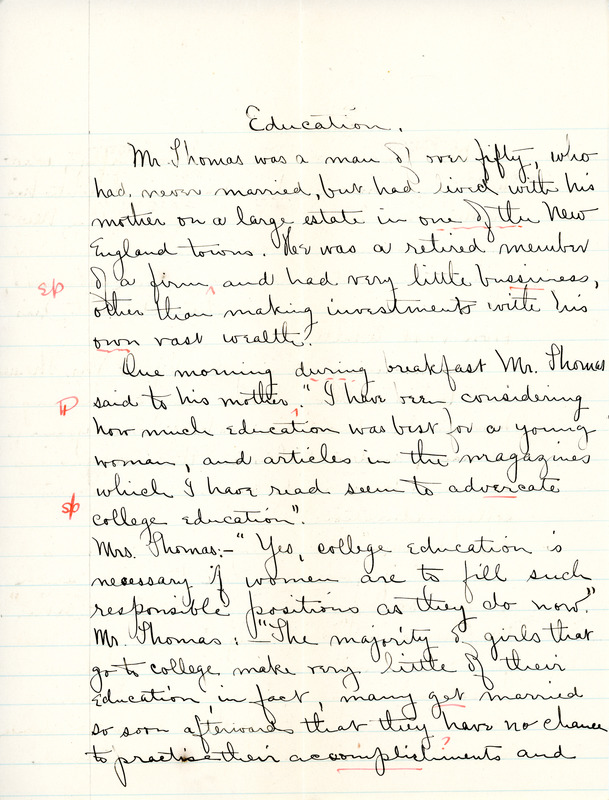 Education.
Mr. Thomas was a man of over fifty, who
had never married, but had lived with his
mother on a large estate in one of the New
England towns. He was a retired member
of a firm, and had very little bussiness,
other than making investments with his
own vast wealth.
One morning during breakfast Mr. Thomas
said to his mother, "I have been considering
how much education was best for a young
woman, and articles in the magazines
which I have read seem to advercate
college education".
Mrs. Thomas:- "Yes, college education is
necessary if women are to fill such
responsible positions as they do now."
Mr. Thomas: "The majority of girls that
go to college make very little of their
education, in fact, many get married
so soon afterwards that they have no chance
to practise their accomplishments and